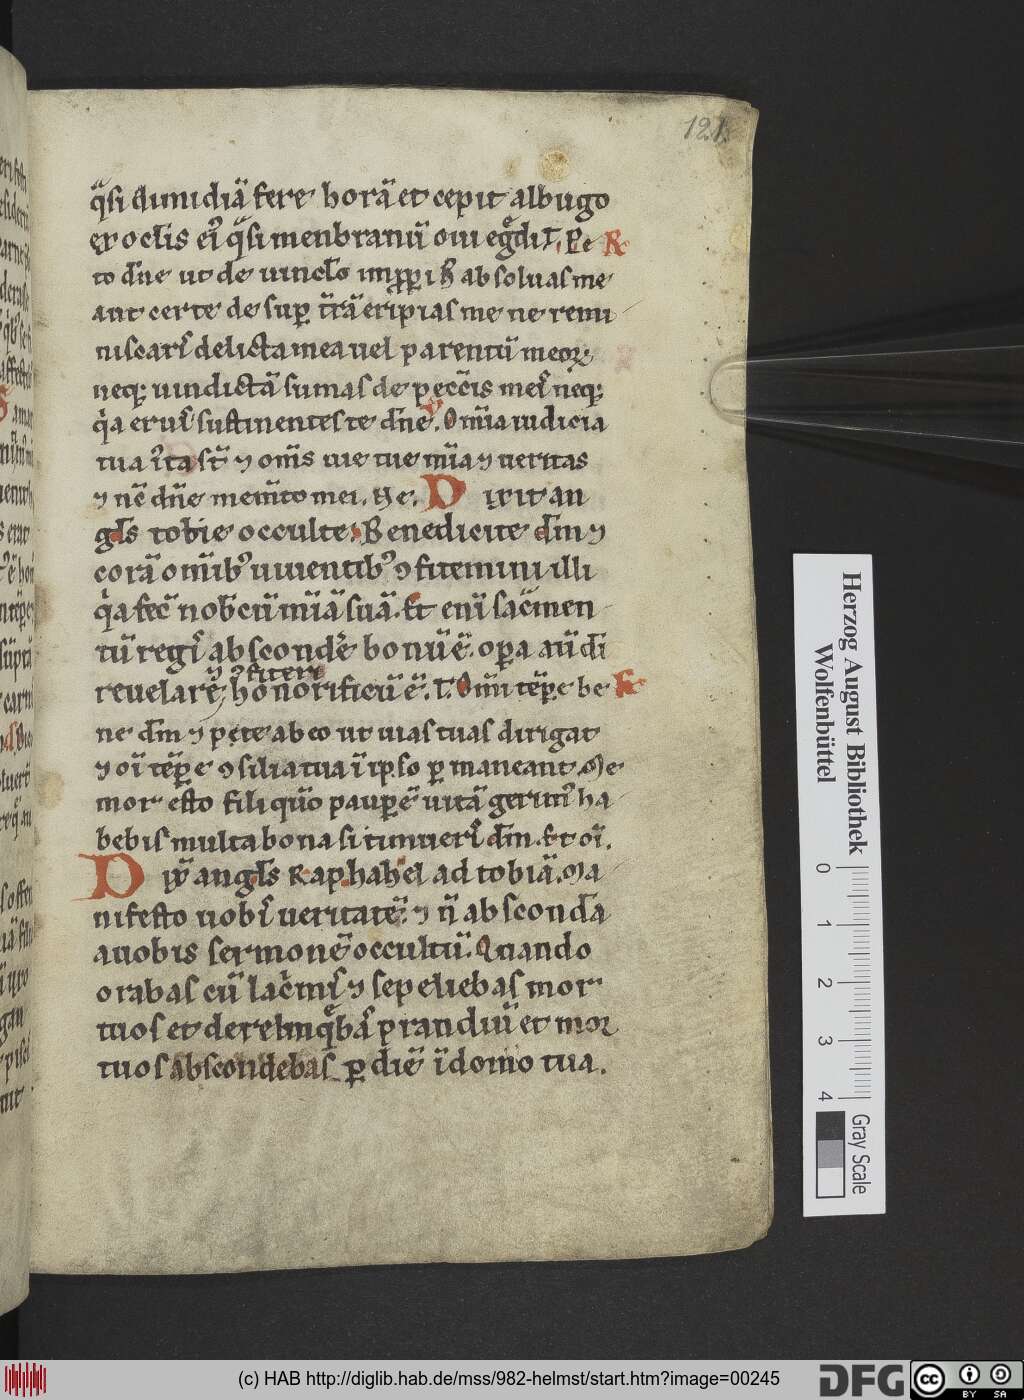 121.
q̊si dimidiā fere horā et cepit albugo
ex oclīs ei᾽ q̊si menbranū oui eg̊di T. Pe R
to dn̄e ut de uincl̄o improp̄ii h᾽ absoluas me
aut certe de sup̄ t̄rā eripias me ne remi
niscaris delicta mea uel parentū meoꝝ
neqꝫ uindictā sumas de pecc̄is meis neqꝫ
q̇a eruis sustinentes te dn̄e. V Om̄ia iudicia
tua ista st̄ ⁊ om̄s uie tue mīa ⁊ ueritas
⁊ nc̄ dn̄e mem̄to mei. Ne. Dixit an
gl̄s tobie occulte. Benedicite dm̄ ⁊
corā om̄ib᾽ uiuentib᾽ ꝯfitemini illi
q̇a fec̄ nob̄cū mīa suā. Et enī sac̄men
tū regis abscond̄e bonū ē. opa aū dī
reuelare ⁊ ꝯfiteri honorificū ē. T. Om̄i tēp̄e be R
ne dm̄ ⁊ pete ab eo ut uias tuas dirigat
⁊ oī tēp̄e ꝯsilia tua ī ipso pmaneant. Me
mor esto fili qūo paup̄ē uitā gerim᾽ ha
bebis multa bona si timueris dm̄. Et oī.
Dix̄ angl̄s Raphahel ad tobiā. Ma
nifesto uobis ueritatē. ⁊ n̄ abscondā
a uobis sermonē occultū. Quando
orabas cū lac̄mis ⁊ sepeliebas mor
tuos et derelinq̊bas prandiū et moꝛ
tuos abscondebas p diē ī domo tua.
Herzog August Bibliothek
Wolfenbüttel
0 1 2 3 4
Gray Scale
(c) HAB http://diglib.hab.de/mss/982-helmst/start.htm?image=00245
DFG
cc BY SA